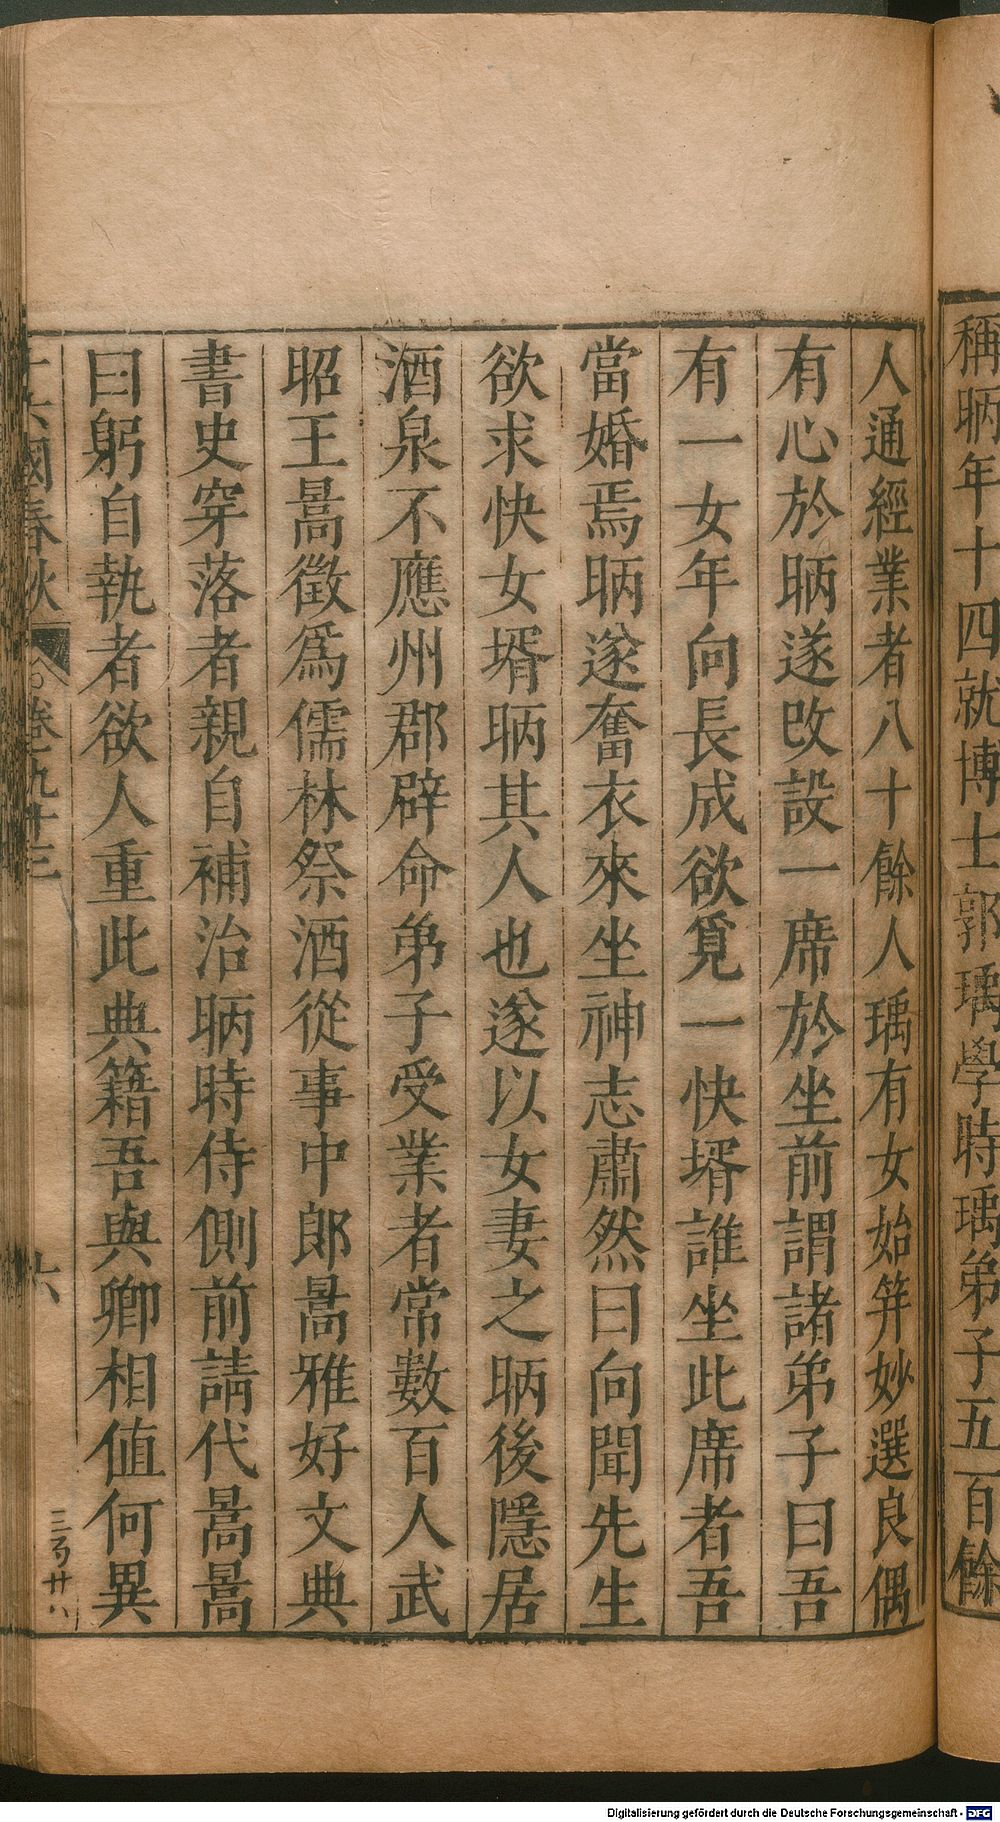 稱昞年十四就博士郭瑀學時瑀弟子五百餘
人通經業者八十餘人瑀有女始筓妙選良偶
有心於昞遂改設一席於坐前謂諸弟子曰吾
有一女年向長成欲覓一快壻誰坐此席者吾
當婚焉昞遂奮衣來坐神志肅然曰向聞先生
欲求快女壻昞其人也遂以女妻之昞後隱居
酒泉不應州郡辟命弟子受業者常數百人武
昭王暠徵爲儒林祭酒從事中郎暠雅好文典
書史穿落者親自補治昞時侍側前請代暠暠
曰躬自執者欲人重此典籍吾與卿相值何異
十六國春秋 卷九十三 六
三百廿八
Digitalisierung gefördert durch die Deutsche Forschungsgemeinschaft - DFG